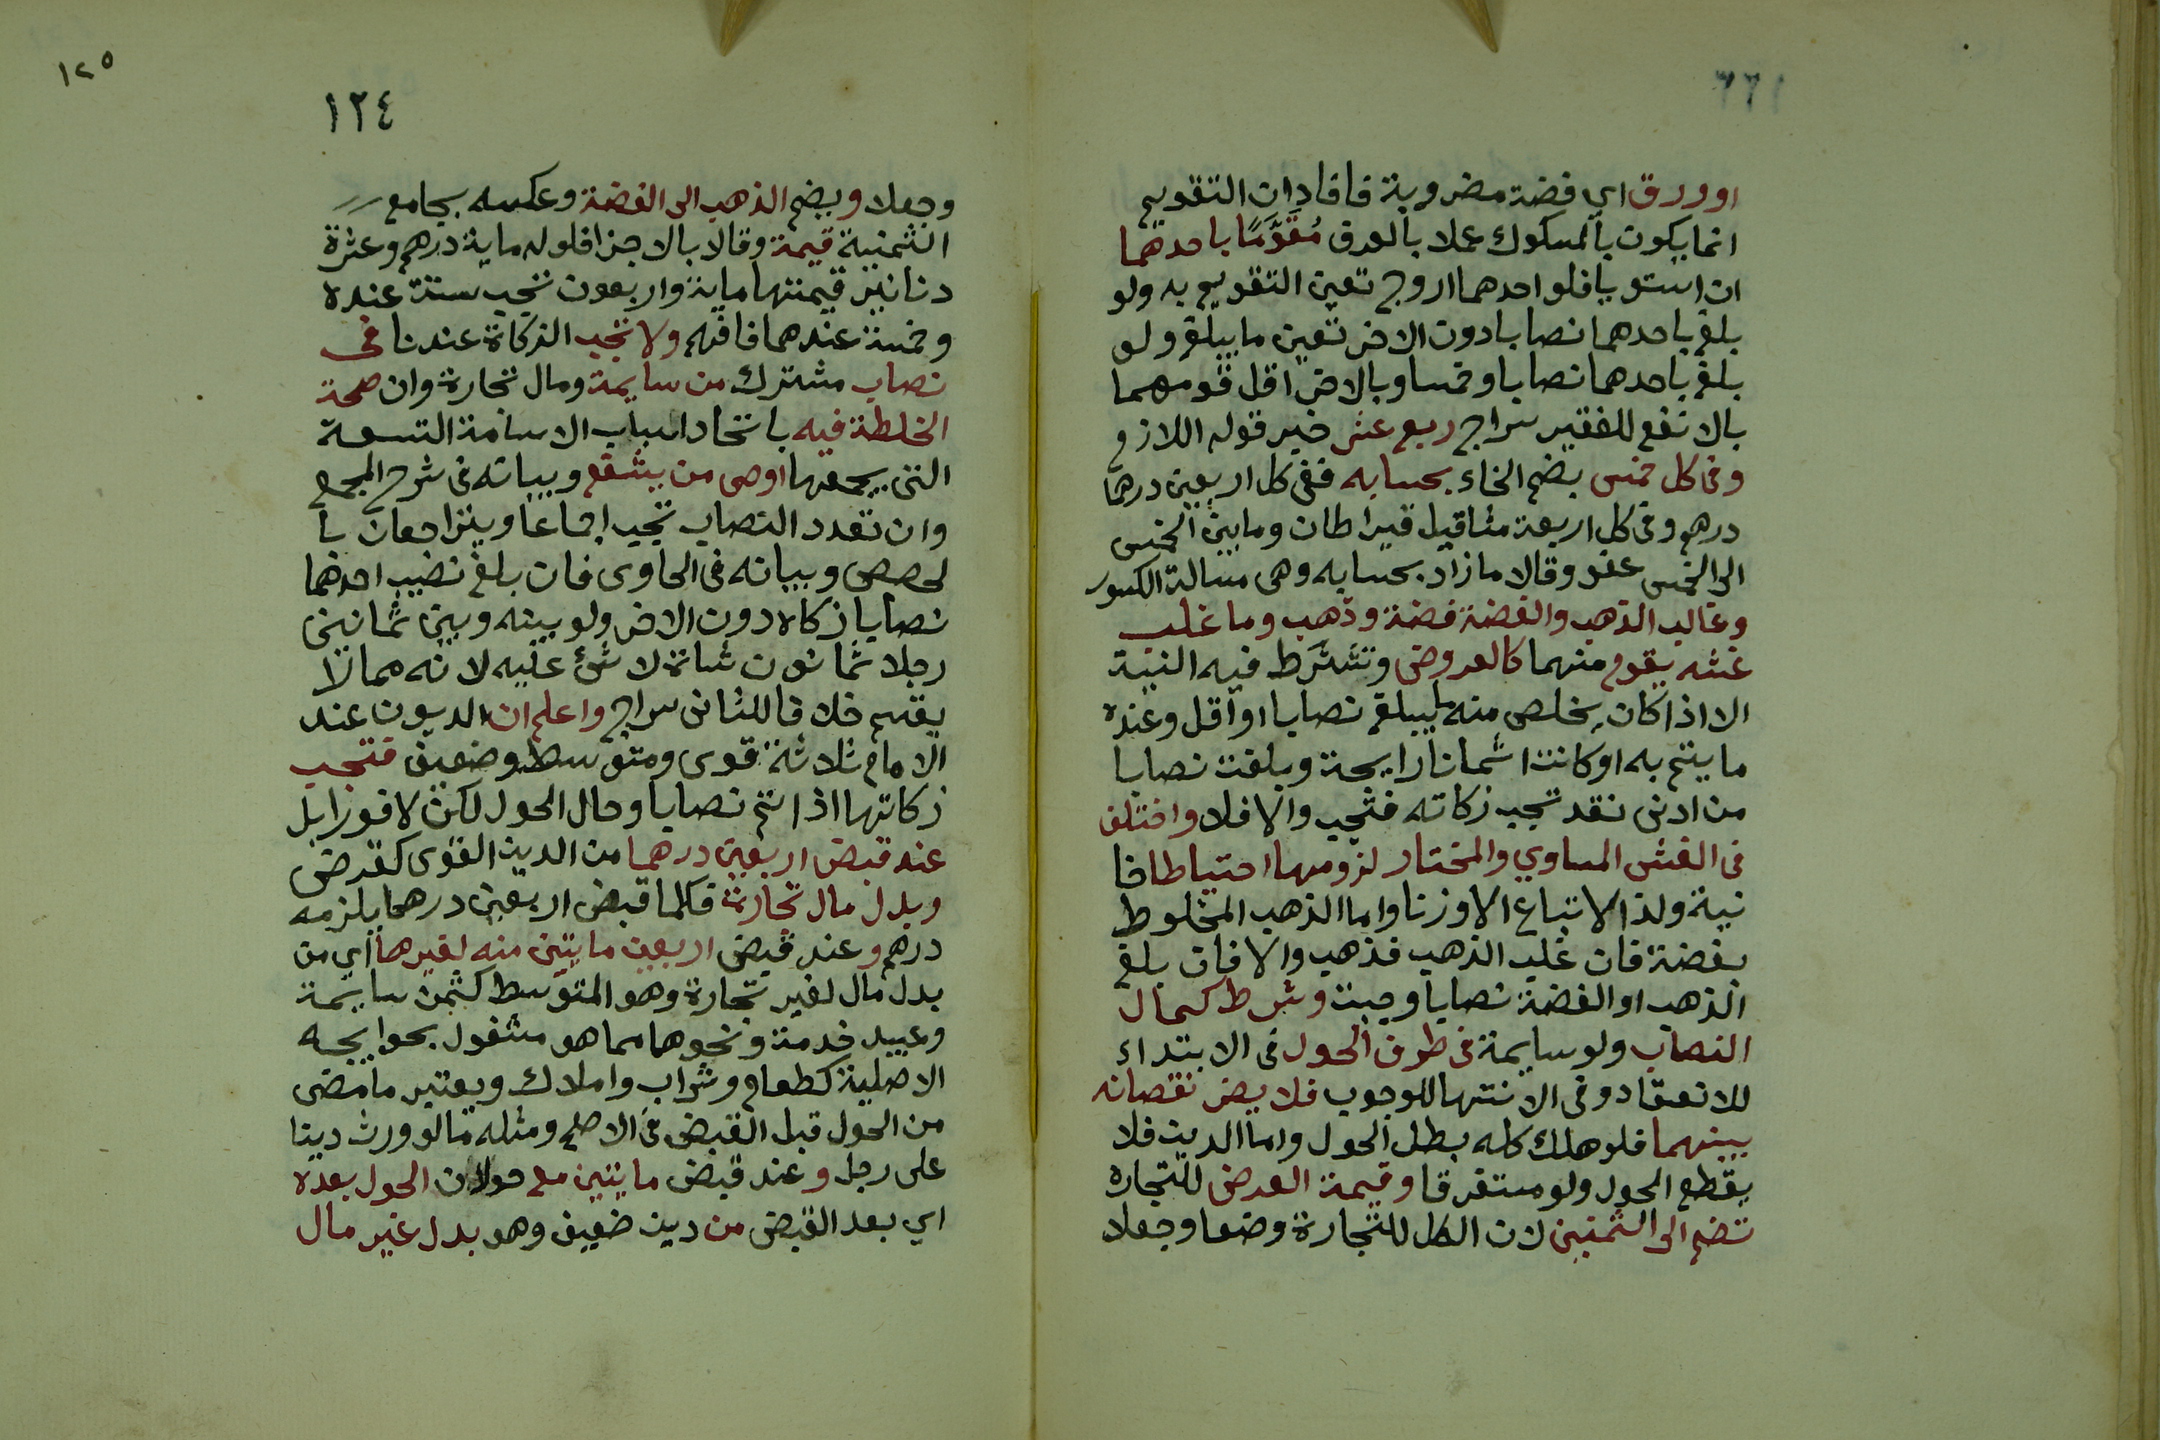 او ورق اي فضة مضروبة فافاد ان التقويم
انما يكون بالمسكوك عملا بالعرف مُقَوَّمًا باحدهما
ان استويا فلو احدهما اروج تعين التقويم به ولو
بلغ باحدهما نصابا دون الاخر تعين ما يبلغ ولو
بلغ باحدهما نصابا وخمسا وبالاخر اقل قومهما
بالانفع للفقير سراج ربع عشر خبر قوله اللازم
وفي كل خمس بضم الخاء بحسابه ففي كل اربعين درهما
درهم وفي كل اربعة مثاقيل قيراطان وما بين الخمس
الى الخمس عفو وقالا ما زاد بحسابه وهي مسالة الكسور
وغالب الذهب والفضة فضة وذهب وما غلب
غشه يقوم منهما كالعروض وتشترط فيه النية
الا اذا كان يخلص منه ما يبلغ نصابا او اقل وعنده
ما يتم به او كانت اثمانا رايجة وبلغت نصابا
من ادنى نقد تجب زكاته فتجب والا فلا واختلف
في الغش المساوي والمختار لزومها احتياطا خا
نية ولذا لا تباع الا وزنا واما الذهب المخلوط
بفضة فان غلب الذهب فذهب والا فان بلغ
الذهب او الفضة نصابا وجبت وشرط كمال
النصاب ولو سايمة في طرفي الحول في الابتداء
للانعقاد وفي الانتهاء للوجوب فلا يضر نقصانه
بينهما فلو هلك كله بطل الحول واما الدين فلا
يقطع الحول ولو مستغرقا وقيمة العرض للتجاره
تضم الى الثمنين لان الكل للتجارة وضعا وجعلا
١٢٥
١٢٤
وجعلا ويضم الذهب الى الفضة وعكسه بجامع
الثمنية قيمة وقالا بالاجزا فلو له ماية درهم وعشرة
دنانير قيمتها ماية واربعون تجب ستة عنده
وخمسة عندهما فافهم ولا تجب الزكاة عندنا في
نصاب مشترك من سايمة ومال تجارة وان صحة
الخلطة فيه باتحاد اسباب الاسامة التسعة
التي يجمعها اوصى من يشفع وبيانه في شرح المجمع
وان تعدد النصاب تجب اجماعا ويتراجعان با
لحصص وبيانه في الحاوي فان بلغ نصيب احدهما
نصابا زكاه دون الاخر ولو بينه وبين ثمانين
رجلا ثمانون شاة لا شئ عليه لانه مما لا
يقسم خلافا للثاني سراج واعلم ان الديون عند
الامام ثلاثة قوى ومتوسط وضعيف فتجب
زكاتها اذا تم نصابا وحال الحول لكن لا فورا بل
عند قبض اربعين درهما من الدين القوى كقرض
وبدل مال تجارة فكلما قبض اربعين درهما يلزمه
درهم وعند قبض اربعين مايتين منه لغيرها اي من
بدل مال لغير تجارة وهو المتوسط كثمن سايمة
وعبيد خدمة ونحوهما مما هو مشغول بحوايجه
الاصلية كطعام وشراب واملاك ويعتبر ما مضى
من الحول قبل القبض في الاصح ومثله ما لو ورث دينا
على رجل وعند قبض مايتين مع حولان الحول بعده
اي بعد القبض من دين ضعيف وهو بدل غير مال